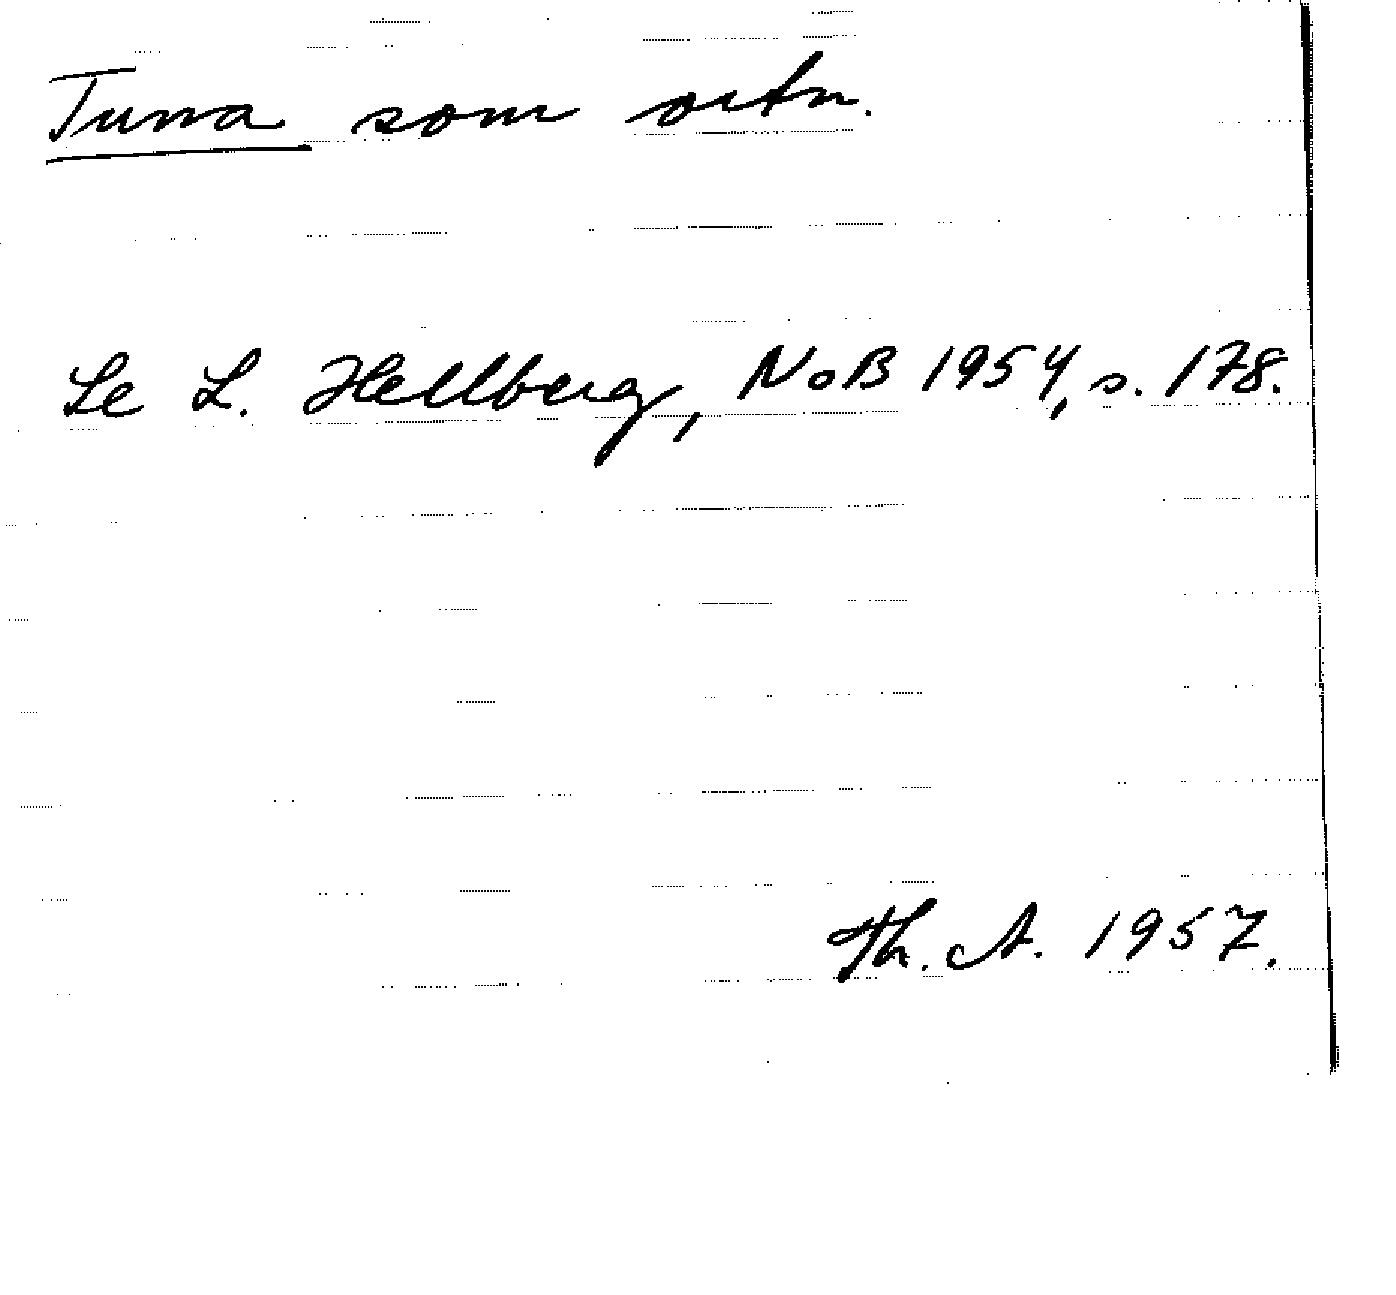 Tuna som ortn.
Se L. Hellberg, NoB 1954, s. 178.
Th. A. 1957.